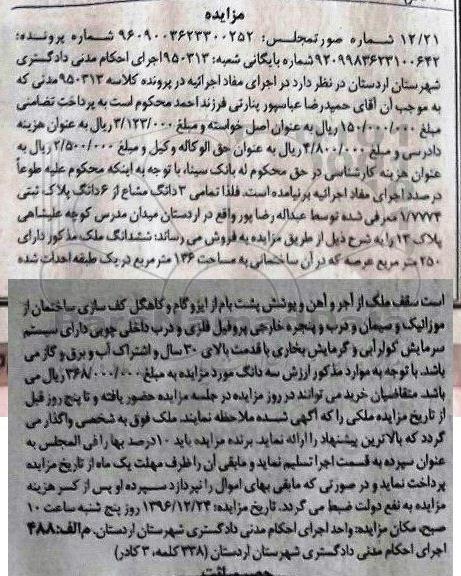 مزایده
۱۲/۲۱ شماره صورتمجلس: ۹۶۰۹۰۰۳۶۲۳۳۰۰۲۵۲ شماره پرونده:
۹۲۰۹۹۸۳۶۲۳۱۰۰۶۴۲ شماره بایگانی شعبه: ۹۵۰۳۱۳ اجرای احکام مدنی دادگستری
شهرستان اردستان در نظر دارد در اجرای مفاد اجرائیه در پرونده کلاسه ۹۵۰۳۱۳ مدنی که
به موجب آن آقای حمیدرضا عباسپور پنارتی فرزند احمد محکوم است به پرداخت تضامنی
مبلغ ۱۵۰/۰۰۰/۰۰۰ ریال به عنوان اصل خواسته و مبلغ ۳/۱۲۳/۰۰۰ ریال به عنوان هزینه
دادرسی و مبلغ ۴/۸۰۰/۰۰۰ ریال به عنوان حق الوکاله وکیل و مبلغ ۲/۵۰۰/۰۰۰ ریال به
عنوان هزینه کارشناسی در حق محکوم له بانک سینا، با توجه به اینکه محکوم علیه طوعاً
درصدد اجرای مفاد اجرائیه برنیامده است. فلذا تمامی ۳ دانگ مشاع از ۶ دانگ پلاک ثبتی
۱/۷۷۷۴ معرفی شده توسط عبداله رضا پور واقع در اردستان میدان مدرس کوچه علیشاهی
پلاک ۱۳ را به شرح ذیل از طریق مزایده به فروش می رساند: ششدانگ ملک مذکور دارای
۲۵۰ متر مربع عرصه که در آن ساختمانی به مساحت ۱۳۶ متر مربع در یک طبقه احداث شده
است سقف ملک از آجر و آهن و پوشش پشت بام از ایزوگام و کاهگل کف سازی ساختمان از
موزائیک و سیمان و درب و پنجره خارجی پروفیل فلزی و درب داخلی چوبی دارای سیستم
سرمایش کولر آبی و گرمایش بخاری با قدمت بالای ۳۰ سال و اشتراک آب و برق و گاز می
باشد. با توجه به موارد مذکور ارزش سه دانگ مورد مزایده به مبلغ ۳۶۸/۰۰۰/۰۰۰ ریال می
باشد. متقاضیان خرید می توانند در روز مزایده در جلسه مزایده حضور یافته و تا پنج روز قبل
از تاریخ مزایده ملکی را که آگهی شده ملاحظه نمایند. ملک فوق به شخصی واگذار می
گردد که بالاترین پیشنهاد را ارائه نماید. برنده مزایده باید ۱۰ درصد بها را فی المجلس به
عنوان سپرده به قسمت اجرا تسلیم نماید و مابقی آن را ظرف مهلت یک ماه از تاریخ مزایده
پرداخت نماید و در صورتی که مابقی بهای اموال را نپردازد سپرده او پس از کسر هزینه
مزایده به نفع دولت ضبط می گردد. تاریخ مزایده: ۱۳۹۶/۱۲/۲۴ روز پنج شنبه ساعت ۱۰
صبح، مکان مزایده: واحد اجرای احکام مدنی دادگستری شهرستان اردستان. م الف: ۴۸۸
اجرای احکام مدنی دادگستری شهرستان اردستان (۳۳۸ کلمه، ۳ کادر)